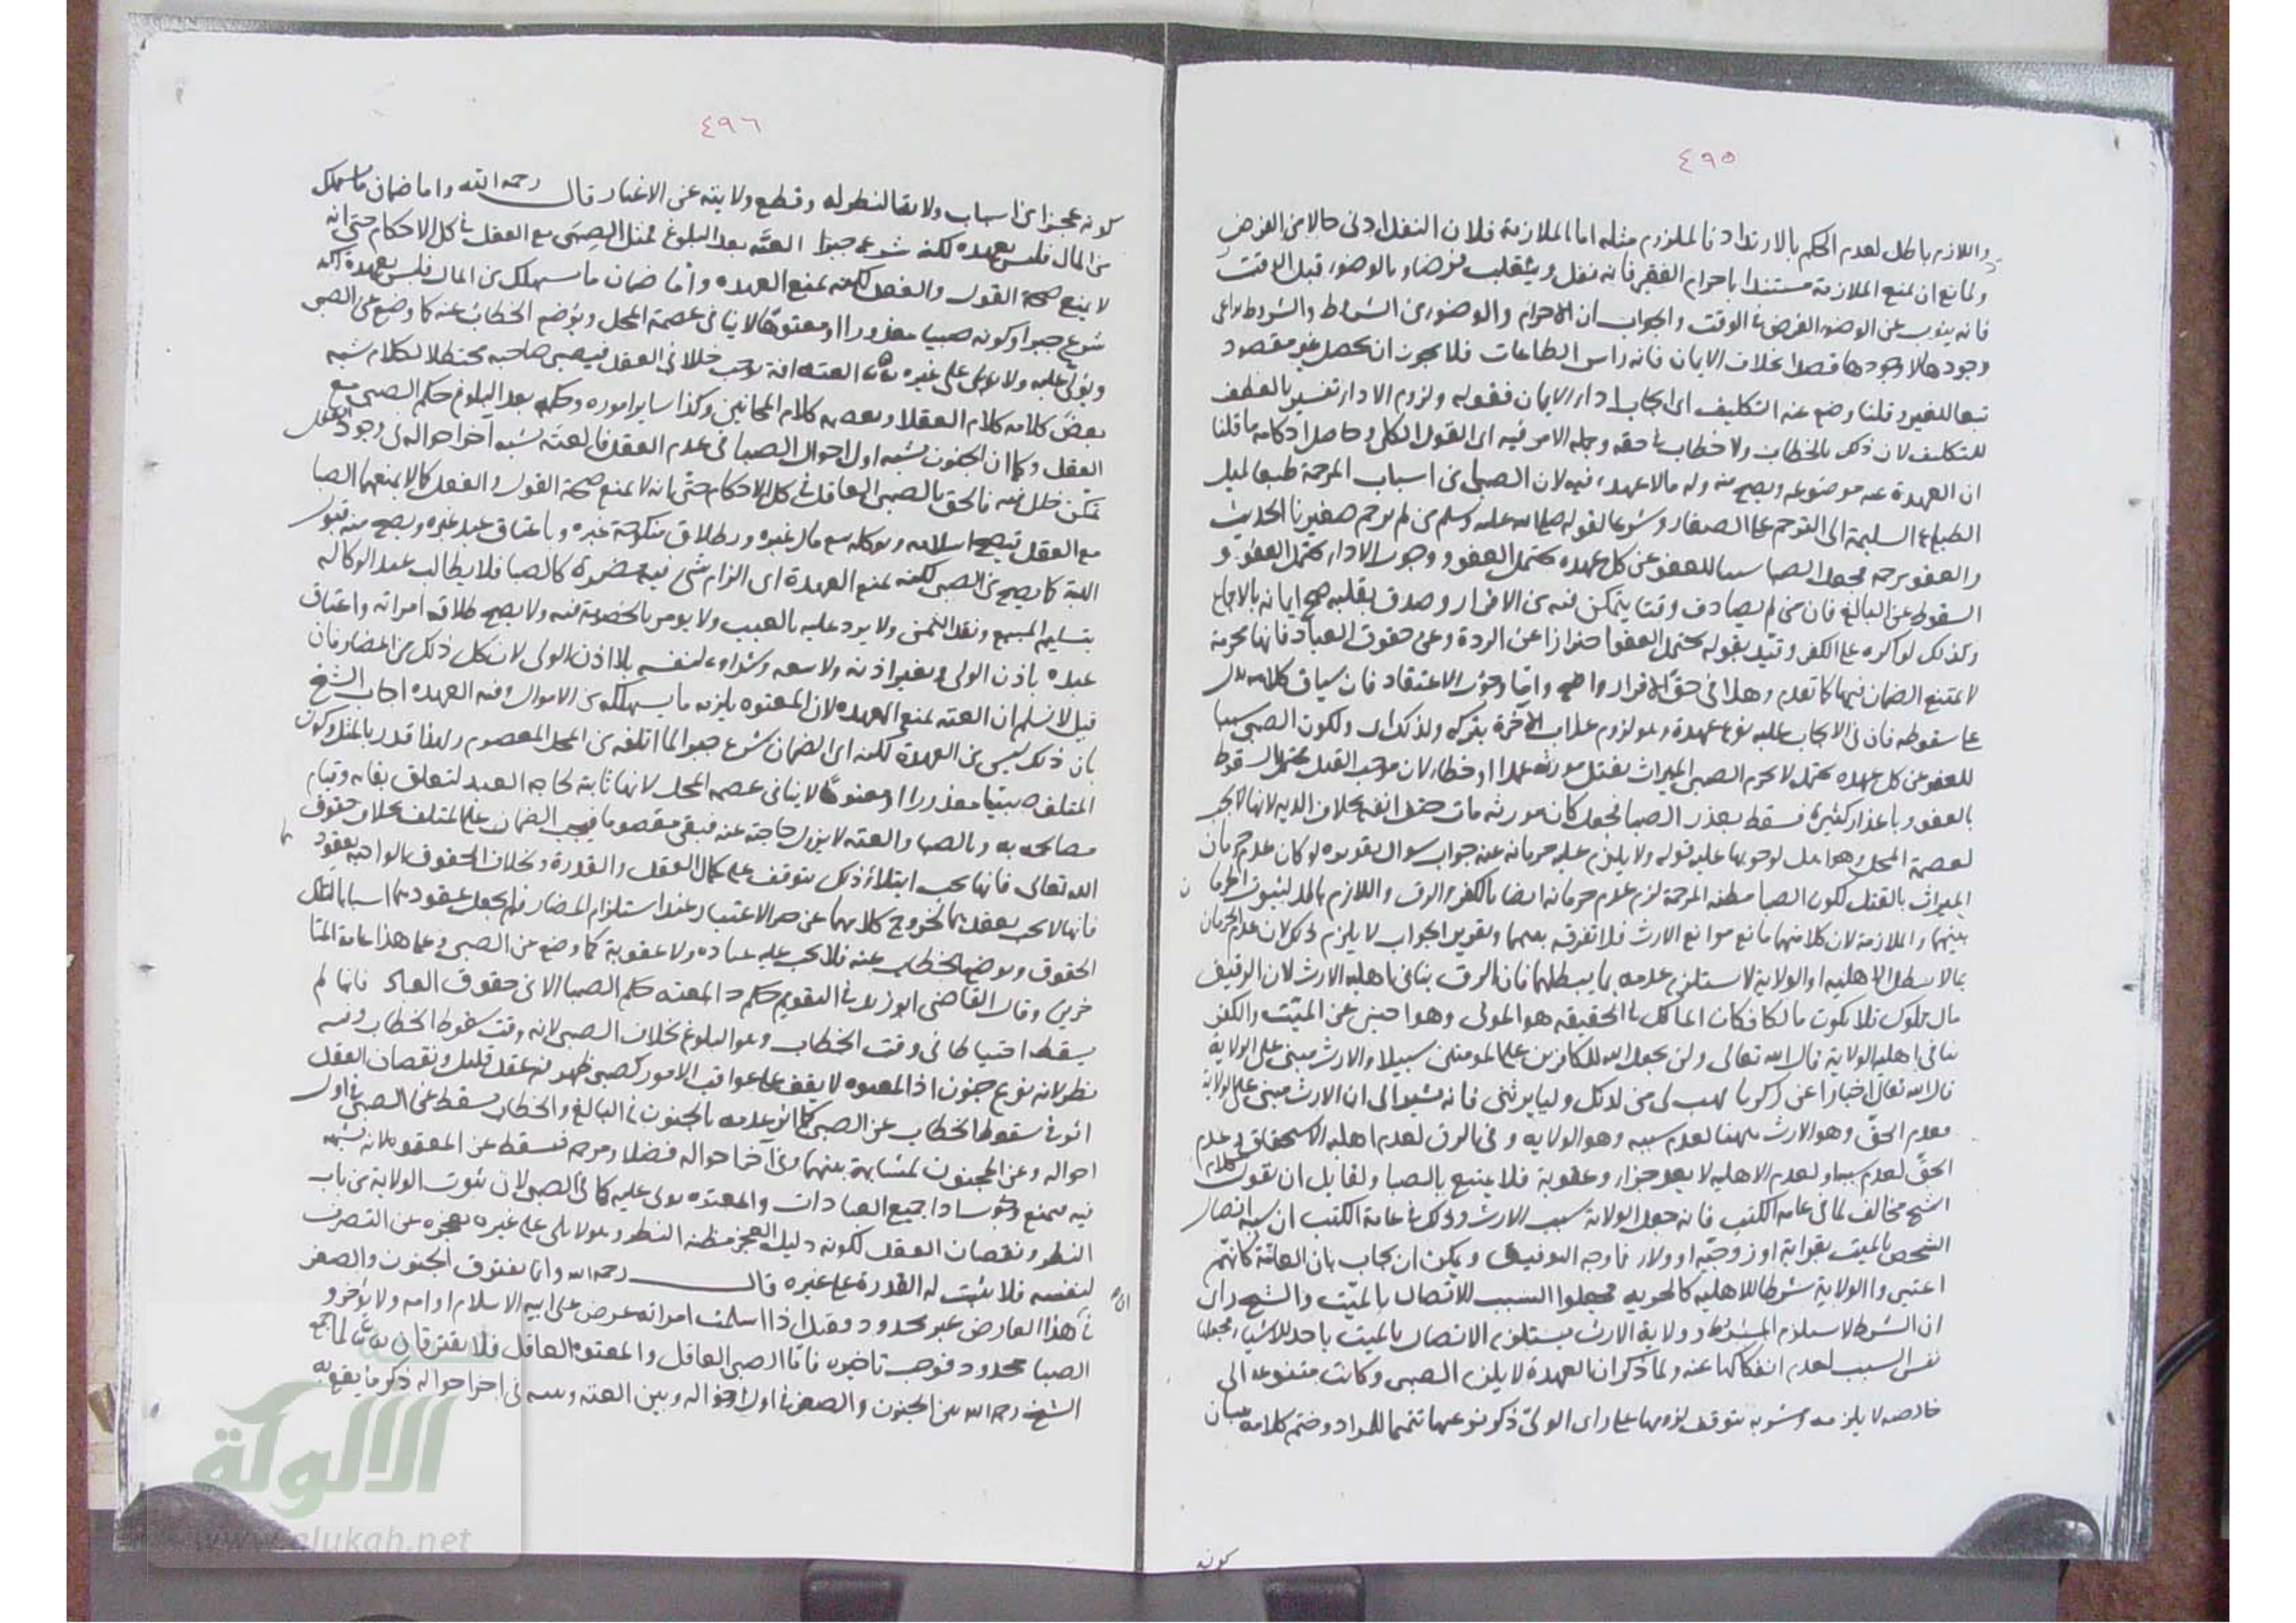 ٤٩٥
واللازم باطل لعدم الحكم بالارتداد فالملزوم مثله اما الملازمة فلان النفل ادنى حالا من الفرض
ولمانع ان يمنع الملازمة مستندا باحرام الفقير فانه نفل وينقلب فرضا وبالوضوء قبل الوقت
فانه ينوب عن الوضوء الفرض في الوقت والجواب ان الاحرام والوضوء من الشرائط والشروط يراعى
وجودها لا وجودها قصدا بخلاف الايمان فانه راس الطاعات فلا يجوز ان يحصل غير مقصود
تبعا للغير وقلنا وضع عنه التكليف اى ايجاب اداء الايمان فقوله ولزوم الاداء تفسير بالعطف
للتكليف لان ذلك بالخطاب ولا خطاب في حقه وجملة الامر فيه اى القول الكلى وحاصل احكامه ما قلنا
ان العهدة عنه موضوعة ويصح منه وله مالا عهدة فيه لان الصبى من اسباب المرحمة طبعا لميل
الطباع السليمة الى الترحم على الصغار وشرعا لقوله صلى الله عليه وسلم من لم يرحم صغيرنا الحديث
والعفو مرحمة فجعل الصبا سببا للعفو عن كل عهدة تحتمل العفو ووجوب الاداء يحتمل العفو و
السقوط عن البالغ فان من لم يصادف وقتا يتمكن فيه من الاقرار وصدق بقلبه صح ايمانه بالاجماع
وكذلك لو اكره على الكفر وقيد بقوله يحتمل العفو احترازا عن الردة وعن حقوق العباد فانها محرمة
لا يمتنع الضمان فيها كما تقدم وهذا فى حق الاقرار واضح واما وجوب الاعتقاد فان سياق كلامه يدل
على سقوطه فان فى الايجاب عليه نوع عهدة وهو لزوم عذاب الآخرة بتركه ولذلك اى ولكون الصبى سببا
للعفو عن كل عهدة تحتمله لا يحرم الصبى الميراث بقتل مورثه عمدا او خطاء لان موجب القتل يحتمل السقوط
بالعفو وباعذار كثيرة فسقط بعذر الصبا فجعل كان مورثه مات حتف انفه بخلاف الدية لانها تجب
لعصمة المحل وهو اهل لوجوبها عليه قوله ولا يلزم عليه حرمانه عنه جواب سوال تقريره لو كان عدم حرمان
الميراث بالقتل لكون الصبا مظنة المرحمة لزم عدم حرمانه ايضا بالكفر والرق واللازم باطل لثبوت الحرمان
بينهما والملازمة لان كلا منهما مانع من موانع الارث فلا تفرقة بينهما وتقرير الجواب لا يلزم ذلك لان عدم الحرمان
بما لا يبطل الاهلية او الولاية لا يستلزم عدمه بما يبطلهما فان الرق ينافى اهلية الارث لان الرقيق
مال مملوك فلا يكون مالكا فكان المالك فى الحقيقة هو المولى وهو اجنبى عن الميت والكفر
ينافى اهلية الولاية قال الله تعالى ولن يجعل الله للكافرين على المومنين سبيلا والارث مبنى على الولاية
قال الله تعالى اخبارا عن زكريا فهب لى من لدنك وليا يرثنى فانه يشير الى ان الارث مبنى على الولاية
فعدم الحق وهو الارث ههنا لعدم سببه وهو الولاية وفى الرق لعدم اهلية الاستحقاق وعدم
الحق لعدم سببه او لعدم الاهلية لا يعد جزاء وعقوبة فلا يمتنع بالصبا ولقايل ان يقول كلام
الشيخ مخالف لما فى عامة الكتب فانه جعل الولاية سبب الارث وذلك فى عامة الكتب ان سببه اتصال
الشخص بالميت بقرابة او زوجية او ولاء فما وجه التوفيق ويمكن ان يجاب بان العامة كانهم
اعتبروا الولاية شرطا للاهلية كالحرية فجعلوا السبب للاتصال بالميت والشيخ راى
ان الشرط لا يستلزم المشروط وولاية الارث يستلزم الاتصال بالميت باحد الاشياء فجعلها
نفس السبب لعدم انفكاكها عنه ولما ذكر ان العهدة لا يلزم الصبى وكانت متنوعة الى
خالصة لا يلزمه ومشوبة يتوقف لزومها على راى الولى ذكر نوعيها تتميما للمراد وختم كلامه ببيان
كونه
٤٩٦
كونه عجزا من اسباب ولاية النظر له وقطع ولايته عن الاغيار قال رحمه الله واما ضمان ما يستهلك
من المال فليس بعهدة لكنه شرع جبرا العته بعد البلوغ فمثل الصبى مع العقل فى كل الاحكام حتى انه
لا يمنع صحة القول والفعل لكنه يمنع العهدة واما ضمان ما يستهلك من المال فليس بعهدة لكنه
شرع جبرا وكونه صبيا معذورا او معتوها لا ينافى عصمة المحل ويوضع الخطاب عنه كما وضع عن الصبى
ويولى عليه ولا يلى على غيره العته آفة توجب خللا فى العقل فيصير صاحبه مختلط الكلام يشبه
بعض كلامه كلام العقلا وبعضه كلام المجانين وكذا ساير اموره وحكمه بعد البلوغ حكم الصبى مع
العقل وكما ان الجنون يشبه اول احوال الصبا فى عدم العقل فالعته يشبه آخر احواله فى وجود العقل
تمكن خلل فيه فالحق بالصبى العاقل فى كل الاحكام حتى انه لا يمنع صحة القول والفعل كما لا يمنعهما الصبا
مع العقل فيصح اسلامه وتوكله ببيع مال غيره وبطلاق منكوحة غيره وباعتاق عبد غيره ويصح منه قبول
الهبة كما يصح من الصبى لكنه يمنع العهدة اى الزام شى فيه مضرة كالصبا فلا يطالب عند الوكالة
بتسليم المبيع ونقد الثمن ولا يرد عليه بالعيب ولا يومر بالخصومة فيه ولا يصح طلاقه امراته واعتاق
عبده باذن الولى وبغير اذنه ولا بيعه وشراوه لنفسه بلا اذن الولى لان كل ذلك من المضار فان
قيل لا نسلم ان العته يمنع العهدة لان المعتوه يلزمه ما يستهلكه من الاموال وفيه العهدة اجاب الشيخ
بان ذلك ليس من العهدة لكنه اى الضمان شرع جبرا لما اتلفه من المحل المعصوم ولهذا قدر بالمثل وكون
المتلف صبيا معذورا او معتوها لا ينافى عصمة المحل لانها ثابتة لحاجة العبد لتعلق بقائه وقيام
مصالحه به وبالصبا والعته لا يزول حاجته عنه فيبقى معصوما فيجب الضمان على المتلف بخلاف حقوق
الله تعالى فانها تجب ابتلاء وذلك يتوقف على كمال العقل والقدرة وبخلاف الحقوق الواجبة بعقود
فانها لا تجب بعقدهما لخروج كلامهما عن حيز الاعتبار عند استلزام المضار فلم يجعل عقودهما اسبابا لتلك
الحقوق ويوضع الخطاب عنه فلا يجب عليه عبادة ولا عقوبة كما وضع عن الصبى وعلى هذا عامة المتا
خرين وقال القاضى ابو زيد فى التقويم حكم المعته حكم الصبا الا فى حقوق العباد فانما لم
يسقط احتياطا فى وقت الخطاب وهو البلوغ بخلاف الصبى لانه وقت سقوط الخطاب وفيه
نظر لانه نوع جنون اذ المعتوه لا يقف على عواقب الامور كصبى ظهر فيه عقل قليل ونقصان العقل
اثر فى سقوط الخطاب عن الصبى كما اثر عدمه بالجنون فى البالغ والخطاب يسقط عن الصبى فى اول
احواله وعن المجنون لمشابهة بينهما وفى آخر احواله فضلا ومرحمة فسقط عن المعتوه لانه يشبهه
جميع العبادات والمعتوه يولى عليه كما فى الصبى لان ثبوت الولاية من باب
النظر ونقصان العقل لكونه دليل العجز مظنة النظر وهو لا يلى على غيره لعجزه عن التصرف
لنفسه فلا يثبت له القدرة على غيره قال رحمه الله وانما يفترق الجنون والصغر
فى هذا العارض غير محدود فقيل اذا اسلمت امراته عرض على ابيه الاسلام او امه ولا يؤخر و
الصبا محدود فوجب تاخيره فاما الصبى العاقل والمعتوه العاقل فلا يفترقان لما جمع
الشيخ رحمه الله بين الجنون والصغر فى اول احواله وبين العته وبينه فى آخر احواله ذكر ما يقع به
الالوكة
www.alukah.net